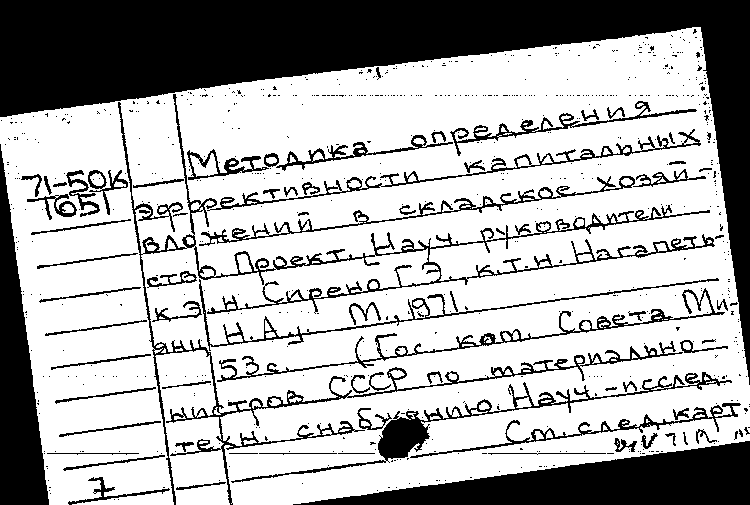 Методика определения
71-50к
1651
эффективности капитальных
вложений в складское хозяй-
ство. Проект. [Науч. руководители
к.э.н. Сирено Г.Э., к.т.н. Нагапеть-
янц Н.А.]. М., 1971.
53с. (Гос. ком. Совета Ми-
нистров СССР по материально-
техн. снабжению. Науч.-исслед.
См. след. карт.
7